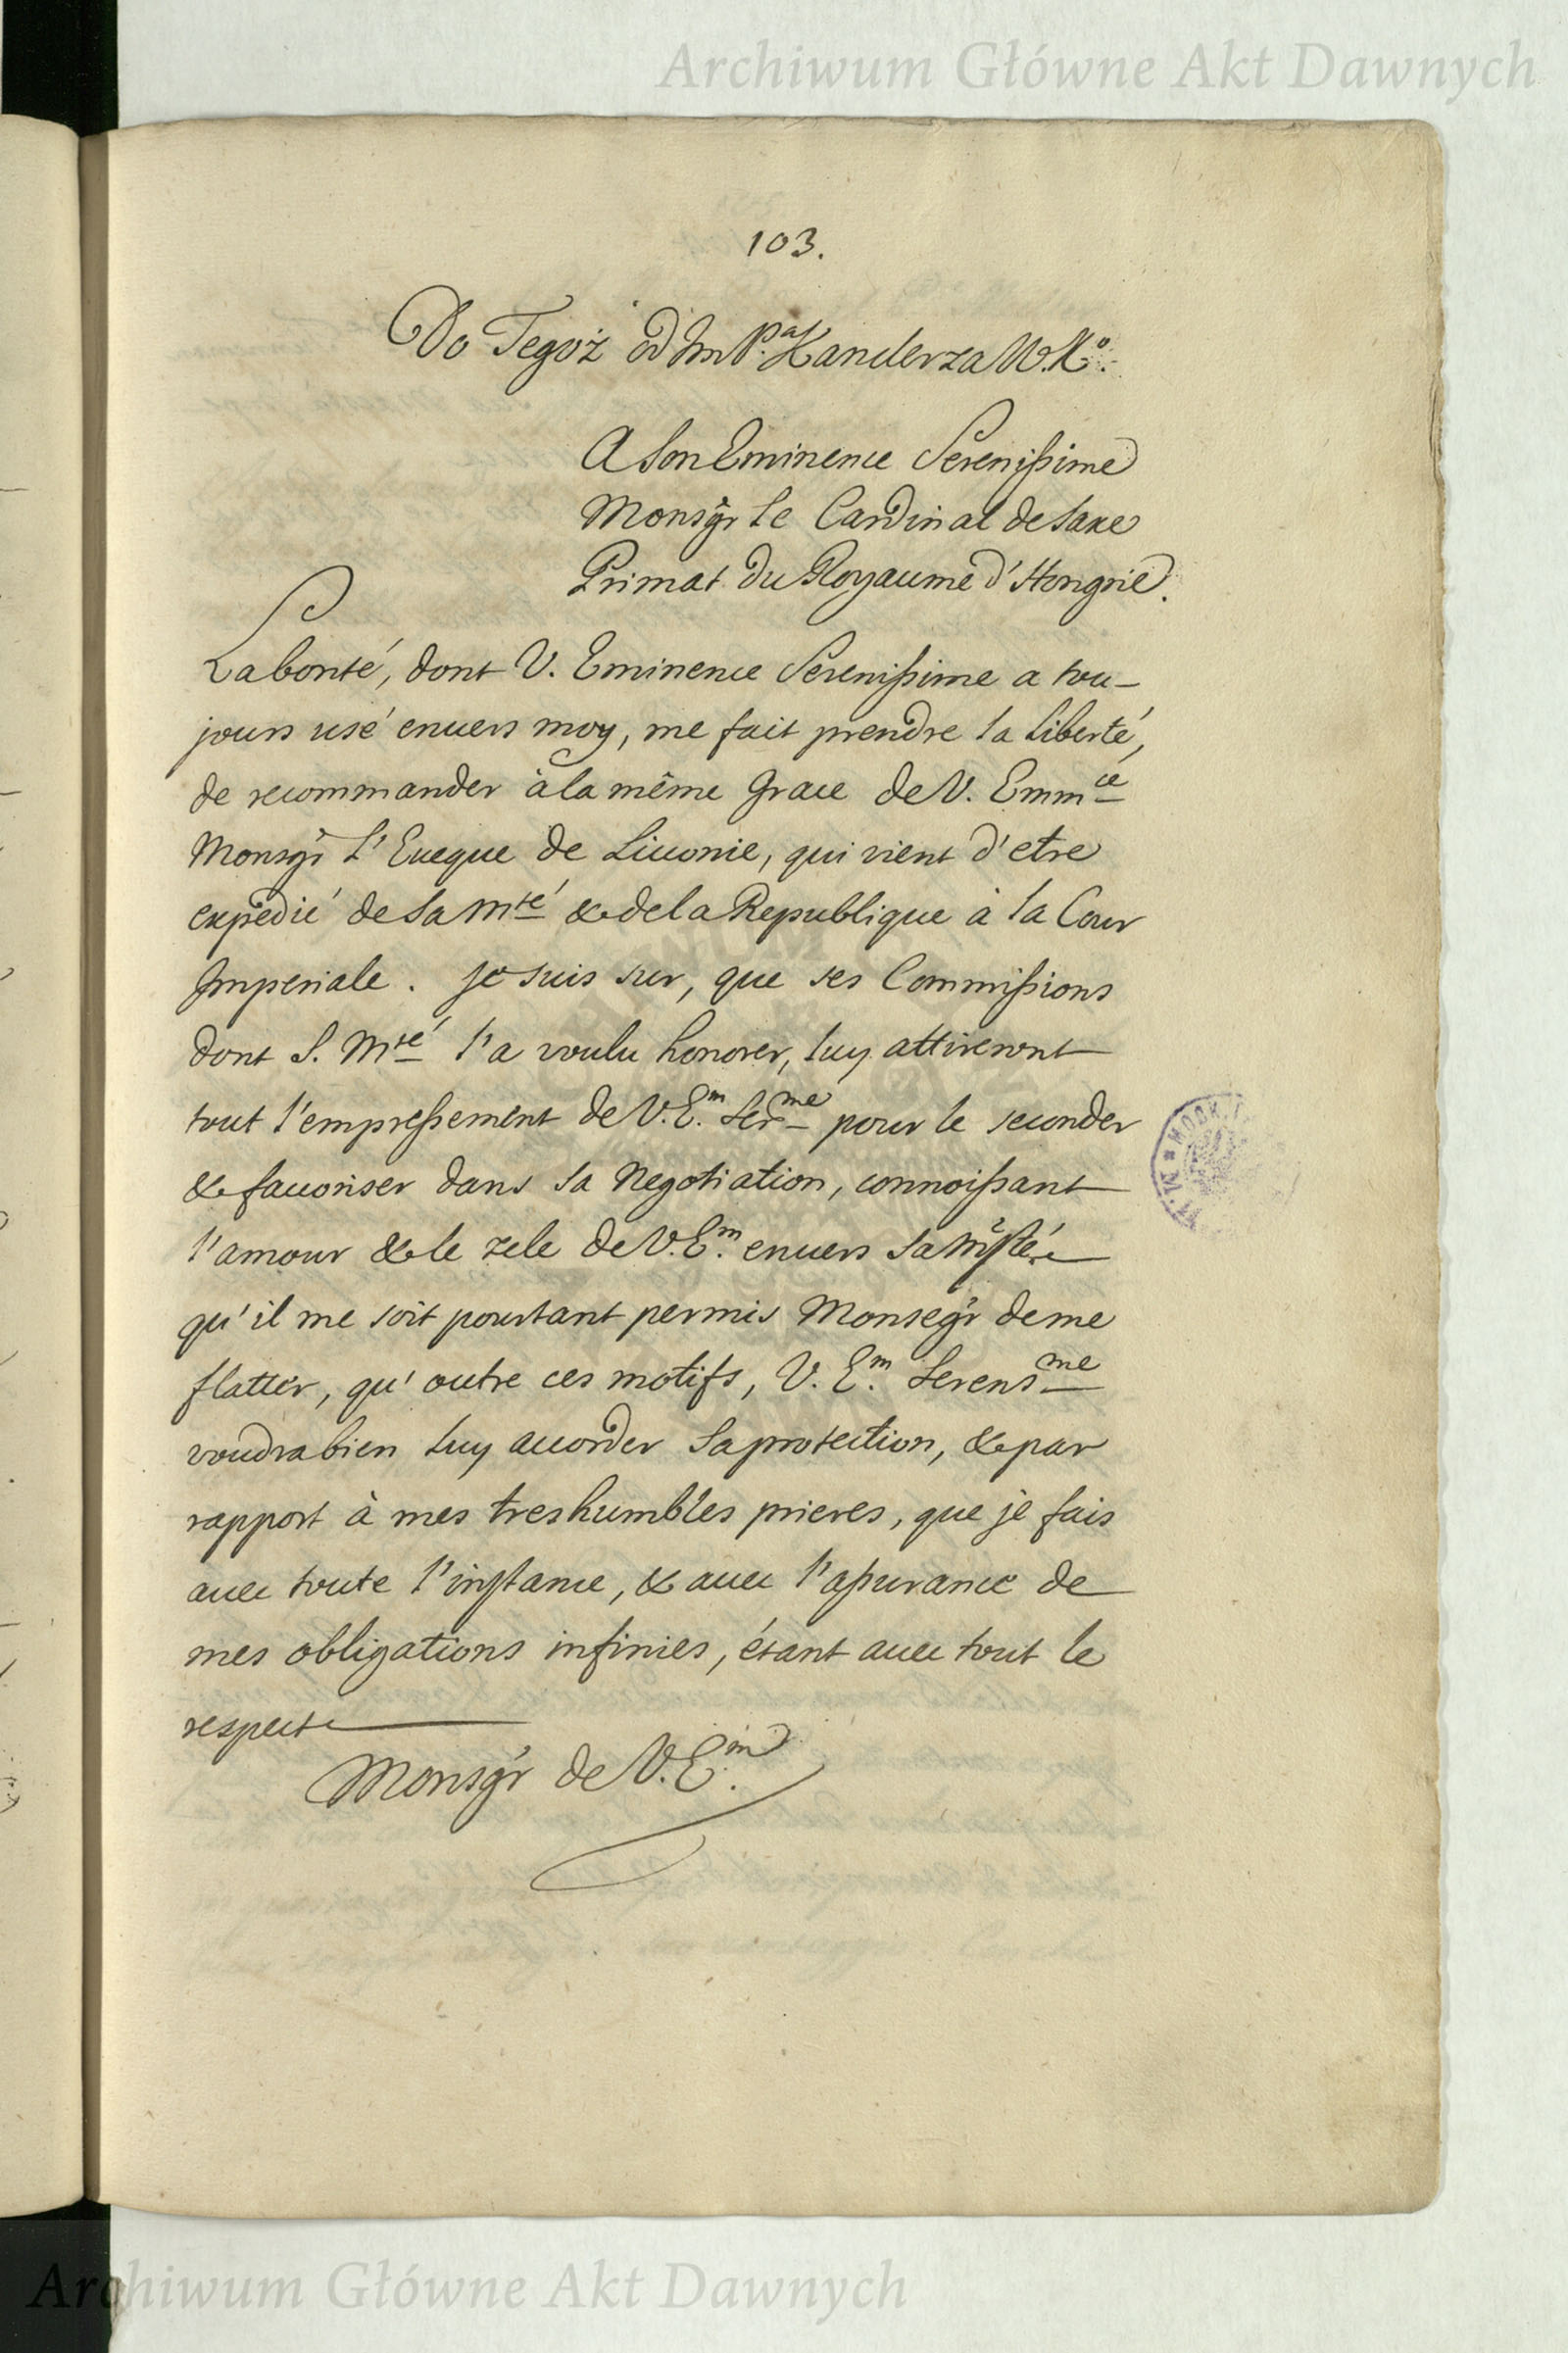 Archiwum Główne Akt Dawnych
103.
Do Tegoż od Jm P.ª Kanclerza W. K.º
A Son Eminence Serenissime
Monsgr Le Cardinal de Saxe
Primat du Royaume d'Hongrie.
La bonté, dont V. Eminence Serenissime a tou-
jours usé enuers moy, me fait prendre la Liberté,
de recommander à la même Grace de V. Emm.ce
Monsgr L'Eueque de Liuonie, qui vient d'etre
expedié de Sa Mté & de la Republique à la Cour
Imperiale. Je suis sur, que ses Commissions
dont S. Mté l'a voulu honorer, luy attireront
tout l'empressement de V. E.m Ser.me pour le seconder
& fauoriser dans sa Negotiation, connoissant
l'amour & le zele de V. E.m enuers Sa Msté.
qu'il me soit pourtant permis Monsegr de me
flatter, qu'outre ces motifs, V. E.m Serens.me
voudra bien Luy accorder Sa protection, & par
rapport à mes tres humbles prieres, que je fais
auec toute l'instance, & auec l'assurance de
mes obligations infinies, étant auec tout le
respect
Monsgr de V. E.m
Archiwum Główne Akt Dawnych